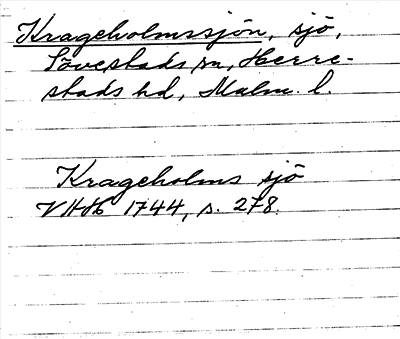 Krageholmssjön, sjö,
Sövestads sn, Herre-
stads hd, Malm. l.
Krageholms sjö
VHH 1744, s. 278.